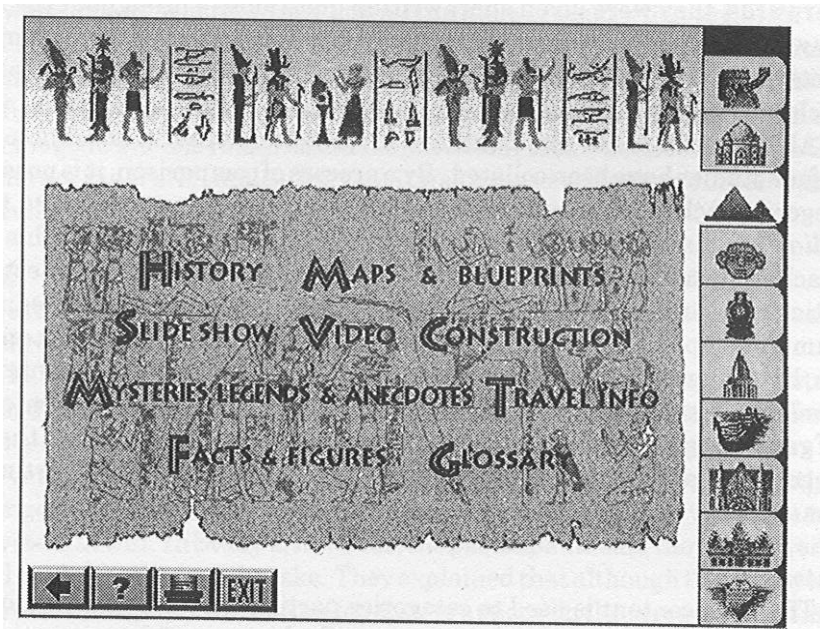 HISTORY MAPS & BLUEPRINTS
SLIDE SHOW VIDEO CONSTRUCTION
MYSTERIES, LEGENDS & ANECDOTES TRAVEL INFO
FACTS & FIGURES GLOSSARY
? EXIT